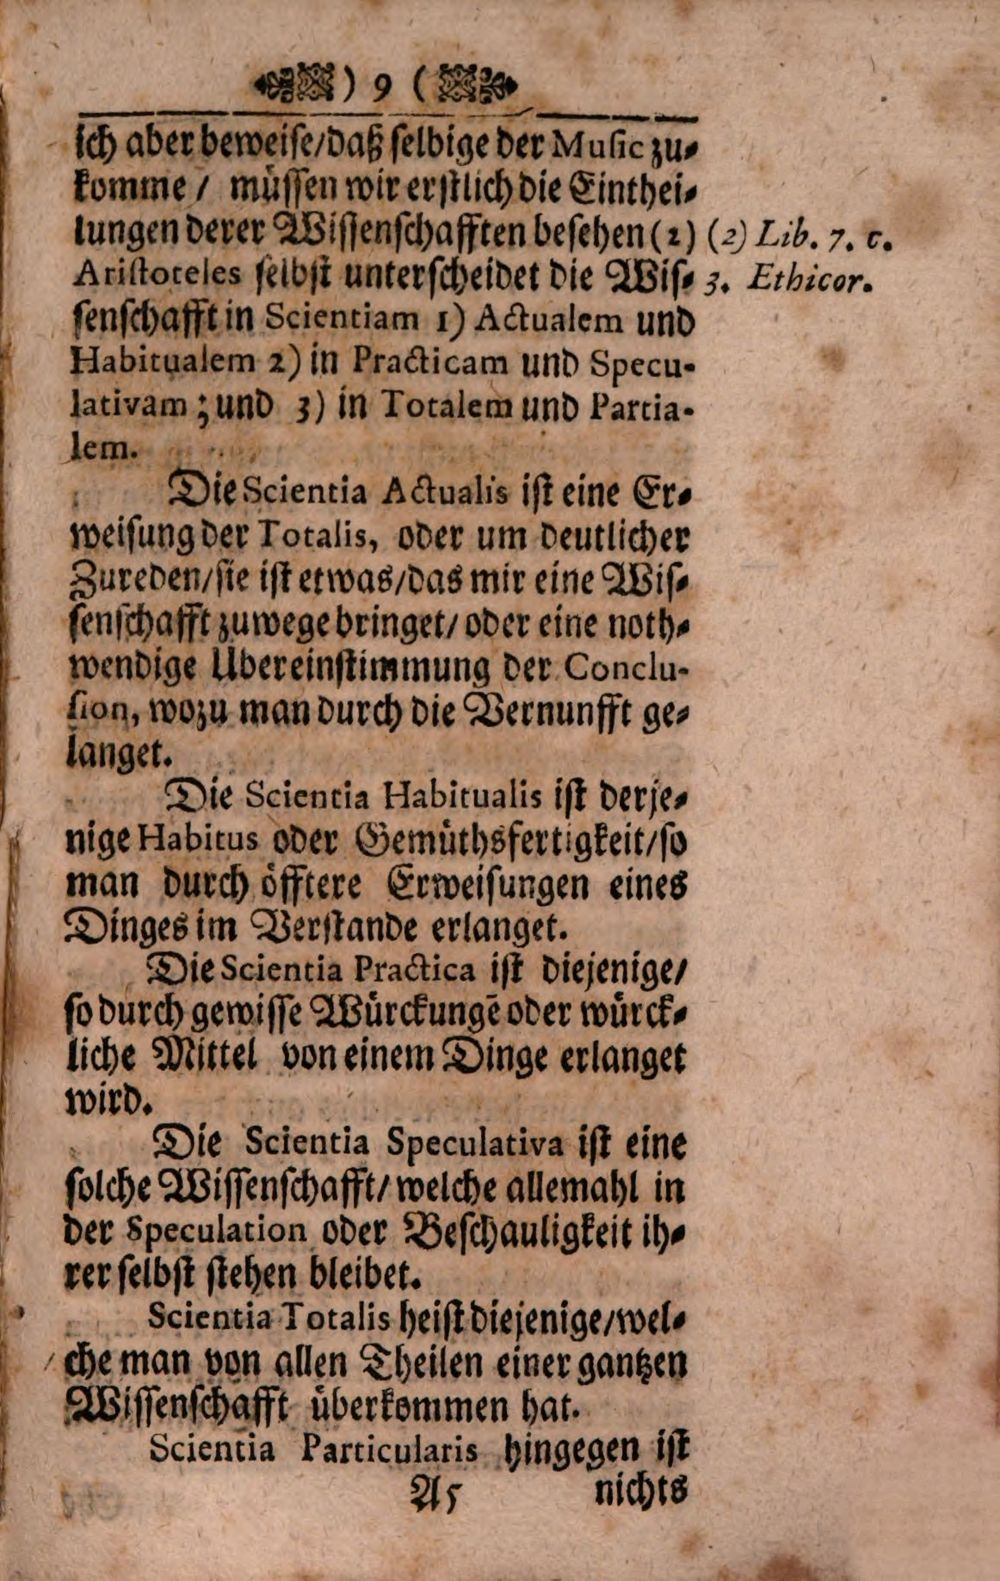 ) 9 (
ich aber beweise/daß selbige der Music zu-
komme / müssen wir erstlich die Einthei-
lungen derer Wissenschafften besehen (2) (2) Lib. 7. c.
Aristoteles selbst unterscheidet die Wis- 3. Ethicor.
senschafft in Scientiam 1) Actualem und
Habitualem 2) in Practicam und Specu-
lativam ; und 3) in Totalem und Partia-
lem.
Die Scientia Actualis ist eine Er-
weisung der Totalis, oder um deutlicher
Zureden/sie ist etwas/das mir eine Wis-
senschafft zuwege bringet/ oder eine noth-
wendige Ubereinstimmung der Conclu-
sion, wozu man durch die Vernunfft ge-
langet.
Die Scientia Habitualis ist derje-
nige Habitus oder Gemüthsfertigkeit/so
man durch öfftere Erweisungen eines
Dinges im Verstande erlanget.
Die Scientia Practica ist diejenige/
so durch gewisse Würckungē oder würck-
liche Mittel von einem Dinge erlanget
wird.
Die Scientia Speculativa ist eine
solche Wissenschafft/ welche allemahl in
der Speculation oder Beschauligkeit ih-
rer selbst stehen bleibet.
Scientia Totalis heist diejenige/wel-
che man von allen Theilen einer gantzen
Wissenschafft überkommen hat.
Scientia Particularis hingegen ist
A5 nichts